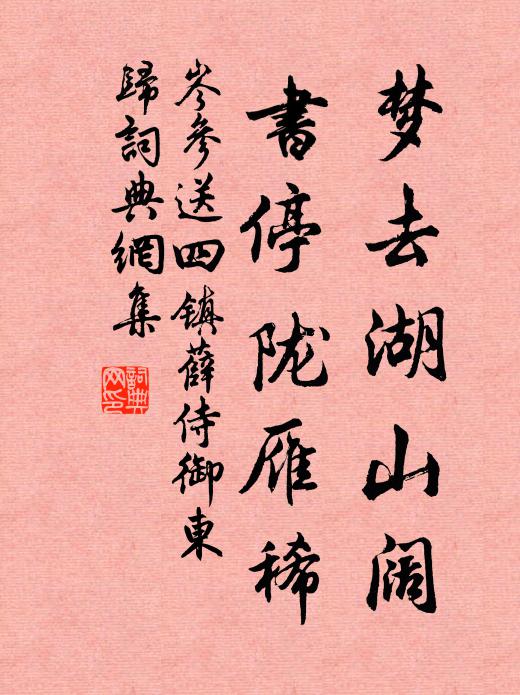 梦去湖山阔
书停陇雁稀
岑参送四镇薛侍御东
归词典网集
词典网印